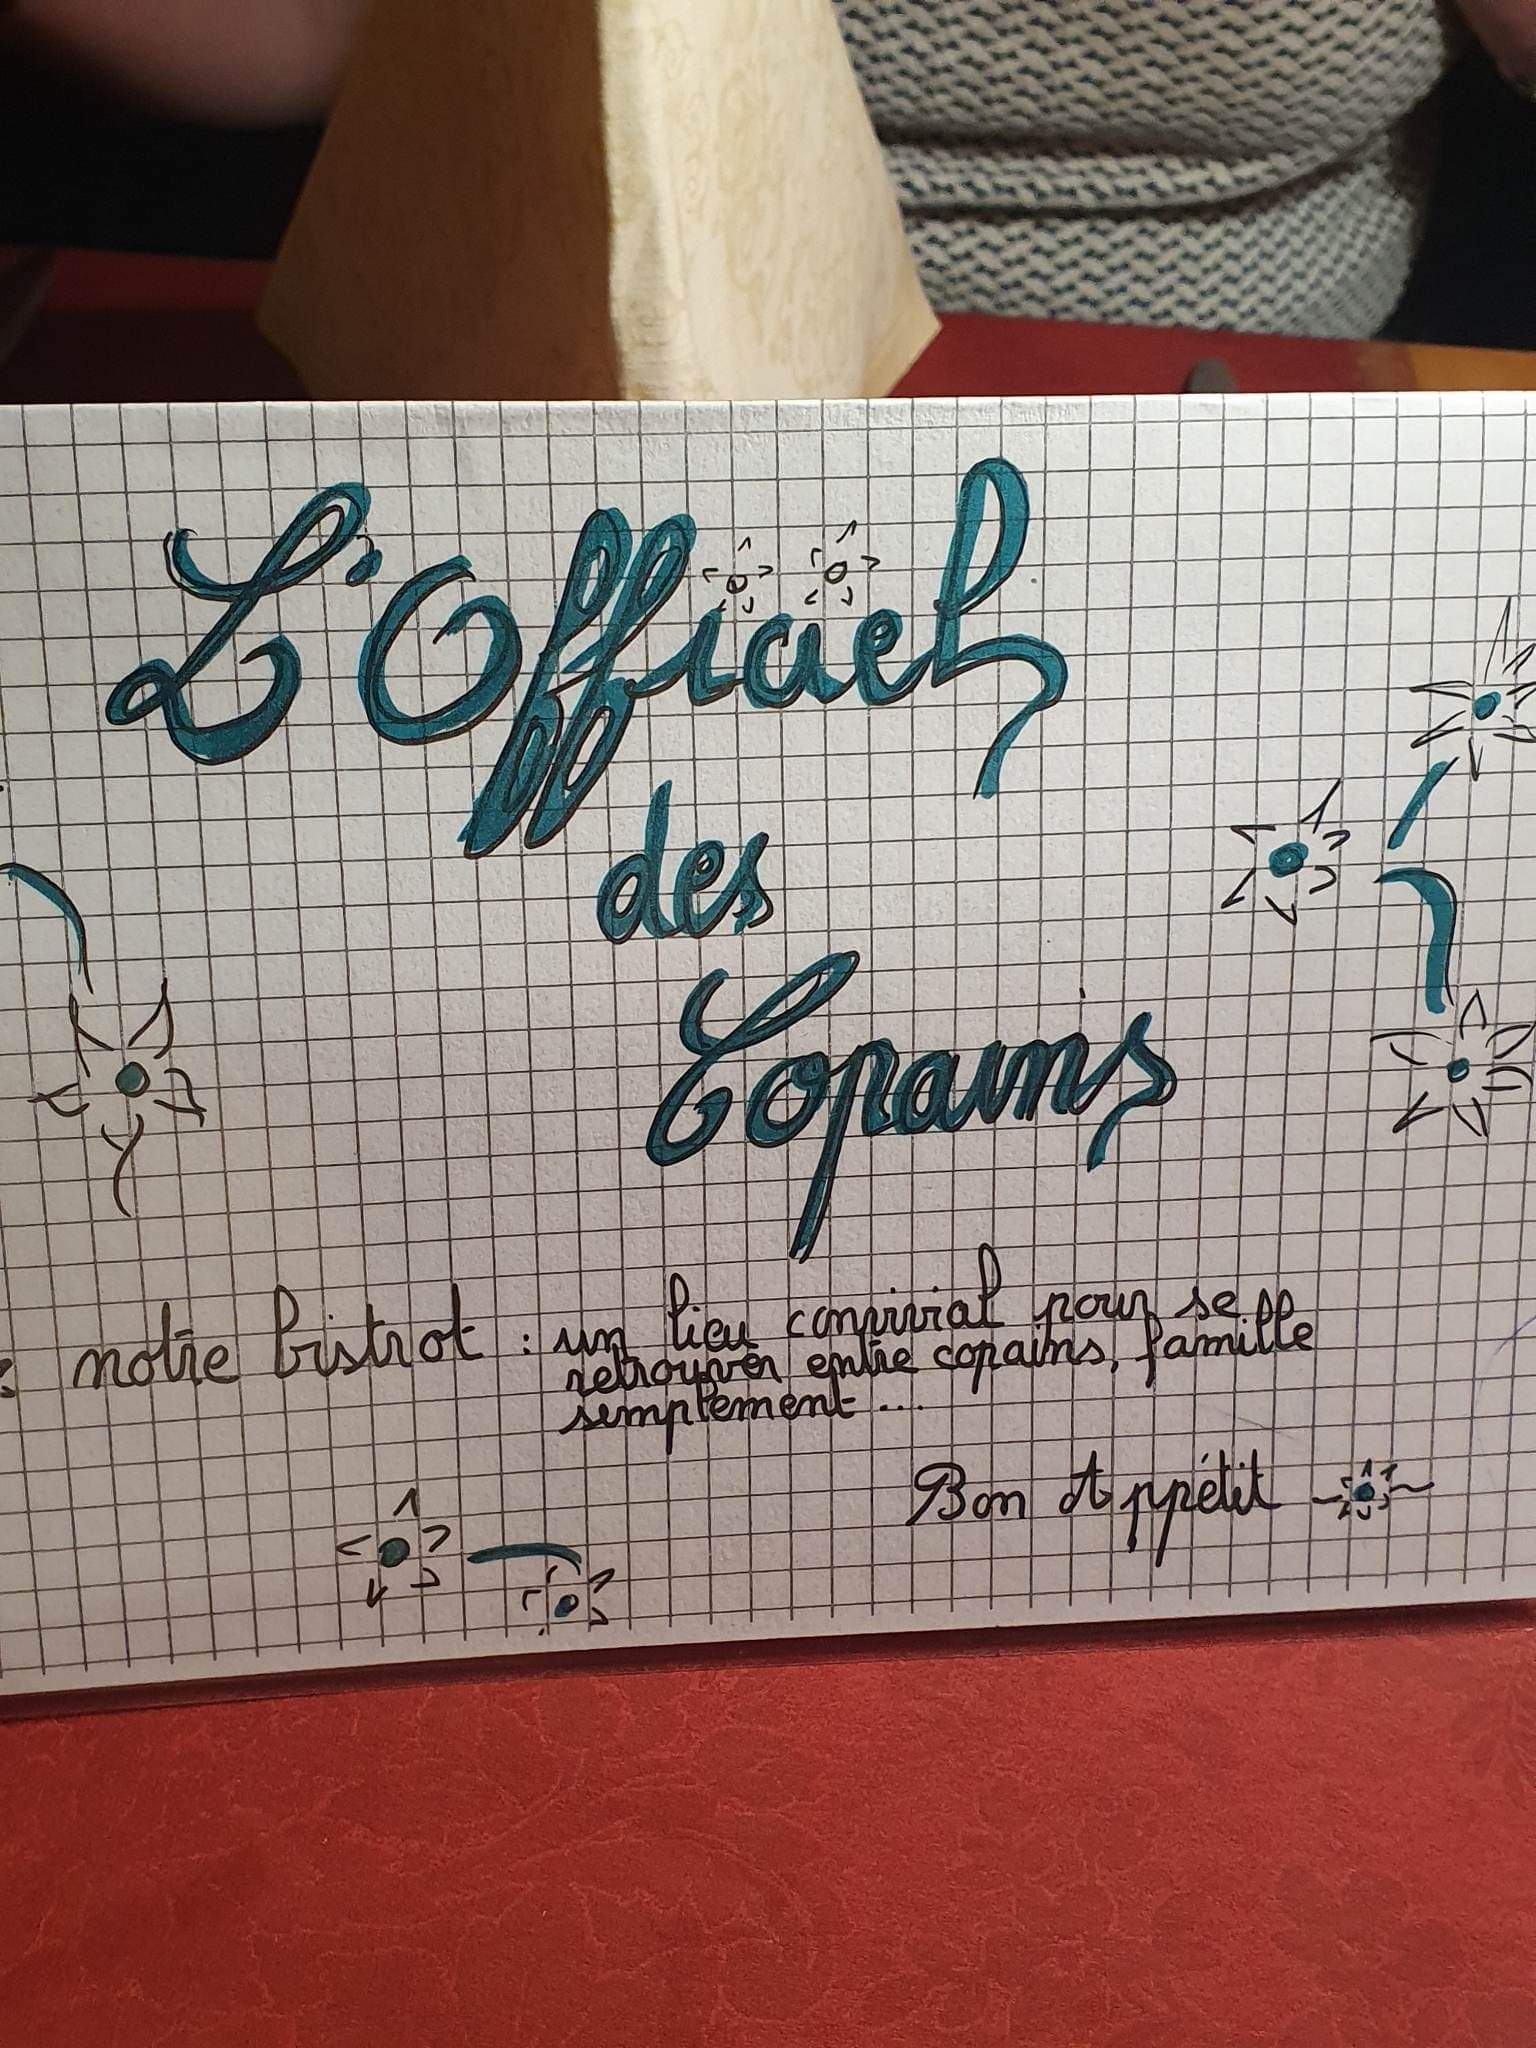 L'Officiel
des
Copains
: notre bistrot : un lieu convivial pour se
retrouver entre copains, famille
simplement ...
Bon Appétit